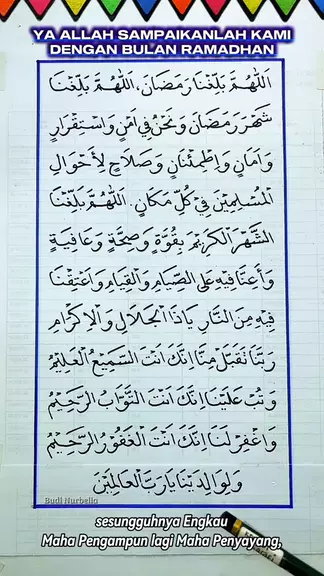 YA ALLAH SAMPAIKANLAH KAMI
DENGAN BULAN RAMADHAN
اَللّٰهُمَّ بَلِّغْنَا رَمَضَانَ، اَللّٰهُمَّ بَلِّغْنَا
شَهْرَ رَمَضَانَ وَنَحْنُ فِيْ اَمْنٍ وَاسْتِقْرَارٍ
وَاَمَانٍ وَاِطْمِئْنَانٍ وَصَلَاحٍ لِاَحْوَالِ
الْمُسْلِمِيْنَ فِيْ كُلِّ مَكَانٍ. اَللّٰهُمَّ بَلِّغْنَا
الشَّهْرَ الْكَرِيْمَ بِقُوَّةٍ وَصِحَّةٍ وَعَافِيَةٍ
وَاَعِنَّا فِيْهِ عَلَى الصِّيَامِ وَالْقِيَامِ وَاعْتِقْنَا
فِيْهِ مِنَ النَّارِ يَاذَا الْجَلَالِ وَالْاِكْرَامِ
رَبَّنَا تَقَبَّلْ مِنَّا اِنَّكَ اَنْتَ السَّمِيْعُ الْعَلِيْمُ
وَتُبْ عَلَيْنَا اِنَّكَ اَنْتَ التَّوَّابُ الرَّحِيْمُ
وَاغْفِرْ لَنَا اِنَّكَ اَنْتَ الْغَفُوْرُ الرَّحِيْمُ
وَلِوَالِدَيْنَا يَارَبَّ الْعَالَمِيْنَ
Budi Nurbella
sesungguhnya Engkau
Maha Pengampun lagi Maha Penyayang,